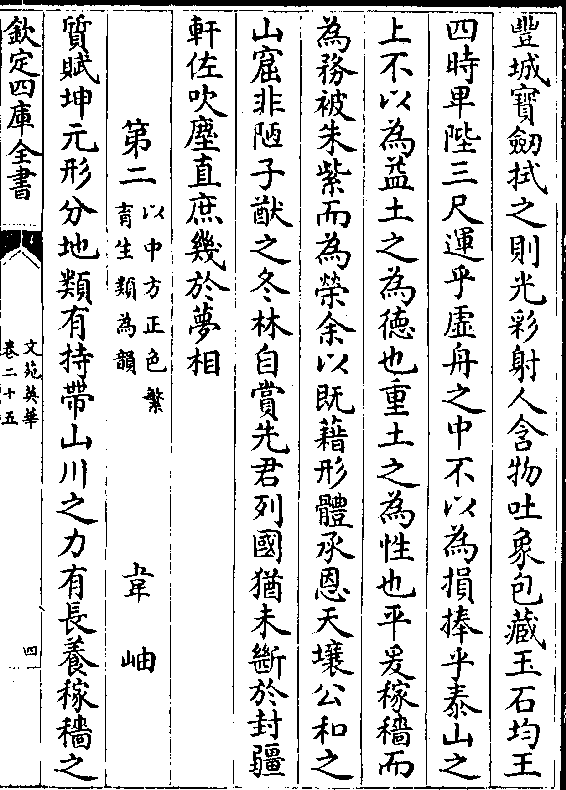 豐城寶劒拭之則光彩射人含物吐象包藏玉石均王
四時畢陛三尺運乎虛舟之中不以為損捧乎泰山之
上不以為益土之為德也重土之為性也平爰稼穡而
為務被朱紫而為榮余以既藉形體承恩天壤公和之
山窟非陋子猷之冬林自賞先君列國猶未斷於封疆
軒佐吹塵直庶幾於夢相
第二
以中方正色繁
育生類為韻
韋岫
質賦坤元形分地類有持帶山川之力有長養稼穡之
欽定四庫全書
文苑英華
卷二十五
四